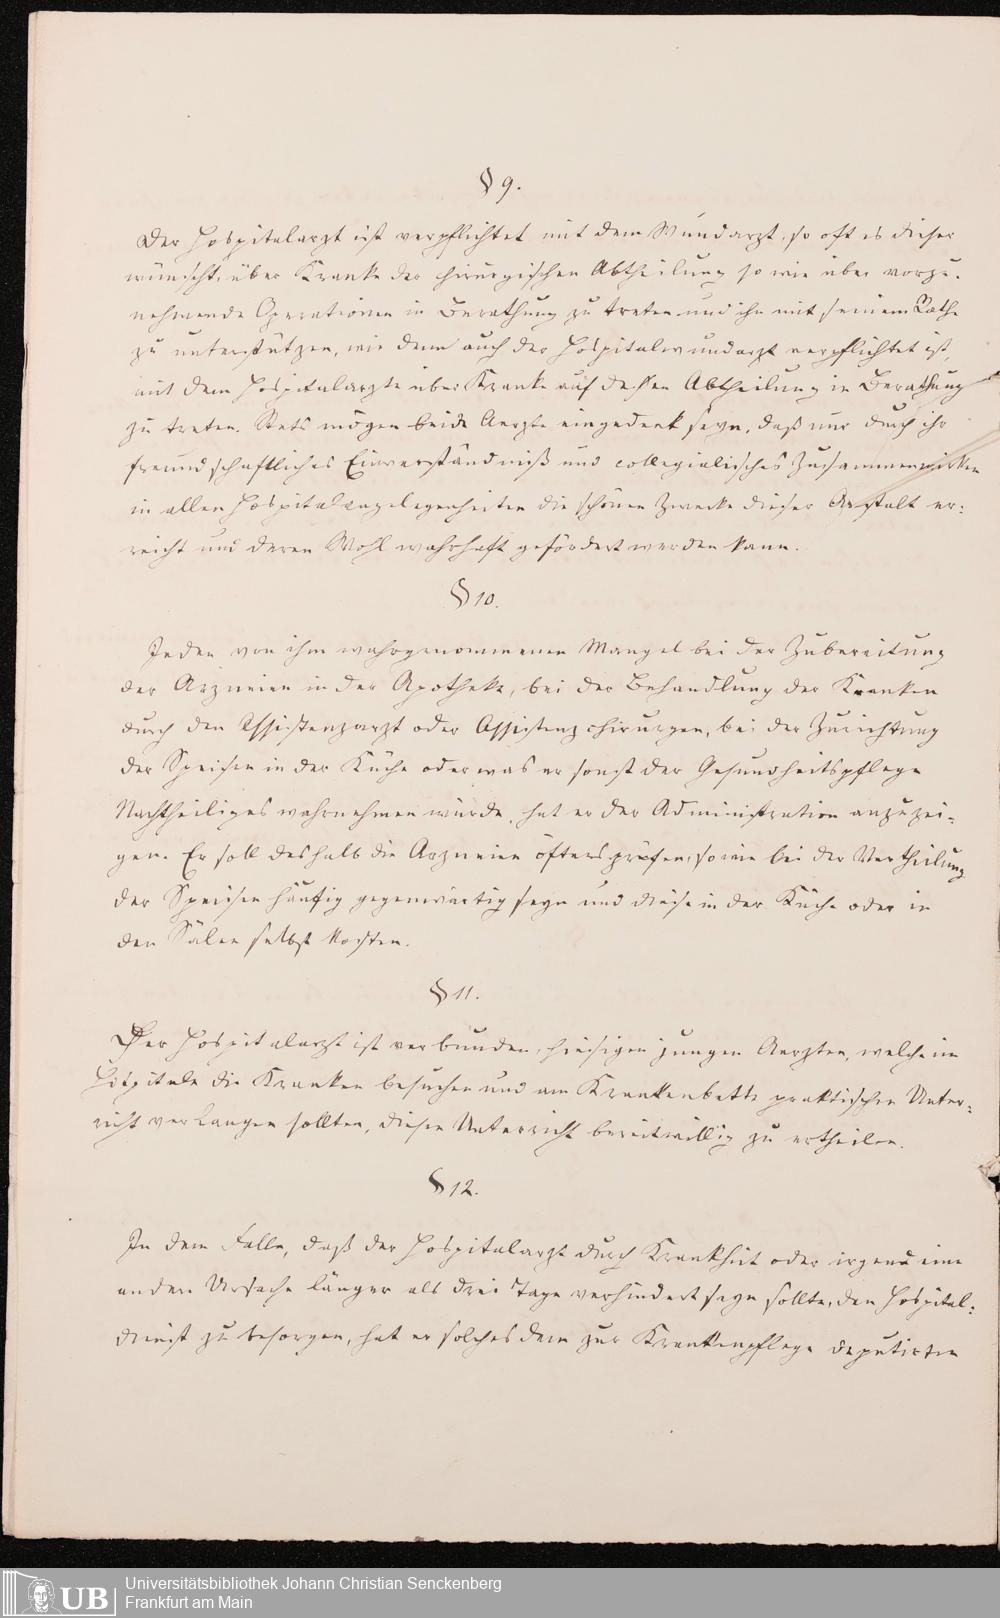 § 9.
Der Hospitalarzt ist verpflichtet mit dem Wundarzt, so oft es dieser
wünscht, über Kranke der chirurgischen Abtheilung so wie über vorzu-
nehmende Operationen in Berathung zu treten und ihn mit seinem Rathe
zu unterstützen, wie denn auch der Hospitalwundarzt verpflichtet ist,
mit dem Hospitalarzte über Kranke auf dessen Abtheilung in Berathung
zu treten. Stets mögen beide Aerzte eingedenk seyn, daß nur durch ihr
freundschaftliches Einverständniß und collegialisches Zusammenwirken
in allen Hospitalangelegenheiten die schönen Zwecke dieser Anstalt er:
reicht und deren Wohl wahrhaft gefördert werden kann.
§ 10.
Jeden von ihm wahrgenommenen Mangel bei der Zubereitung
der Arzneien in der Apotheke, bei der Behandlung der Kranken
durch den Assistenzarzt oder Assistenzchirurgen, bei der Zurichtung
der Speisen in der Küche oder was er sonst der Gesundheitspflege
Nachtheiliges wahrnehmen würde, hat er der Administration anzuzei-
gen. Er soll deshalb die Arzneien öfters prüfen, so wie bei der Vertheilung
der Speisen häufig gegenwärtig seyn und diese in der Küche oder in
den Sälen selbst kosten.
§ 11.
Der Hospitalarzt ist verbunden, hiesigen jungen Aerzten, welche im
Hospitale die Kranken besuchen und am Krankenbette praktischen Unter-
richt verlangen sollten, diesen Unterricht bereitwillig zu ertheilen.
§ 12.
In dem Falle, daß der Hospitalarzt durch Krankheit oder irgend eine
andere Ursache länger als drei Tage verhindert seyn sollte, den Hospital:
dienst zu besorgen, hat er solches dem zur Krankenpflege deputirten
UB
Universitätsbibliothek Johann Christian Senckenberg
Frankfurt am Main